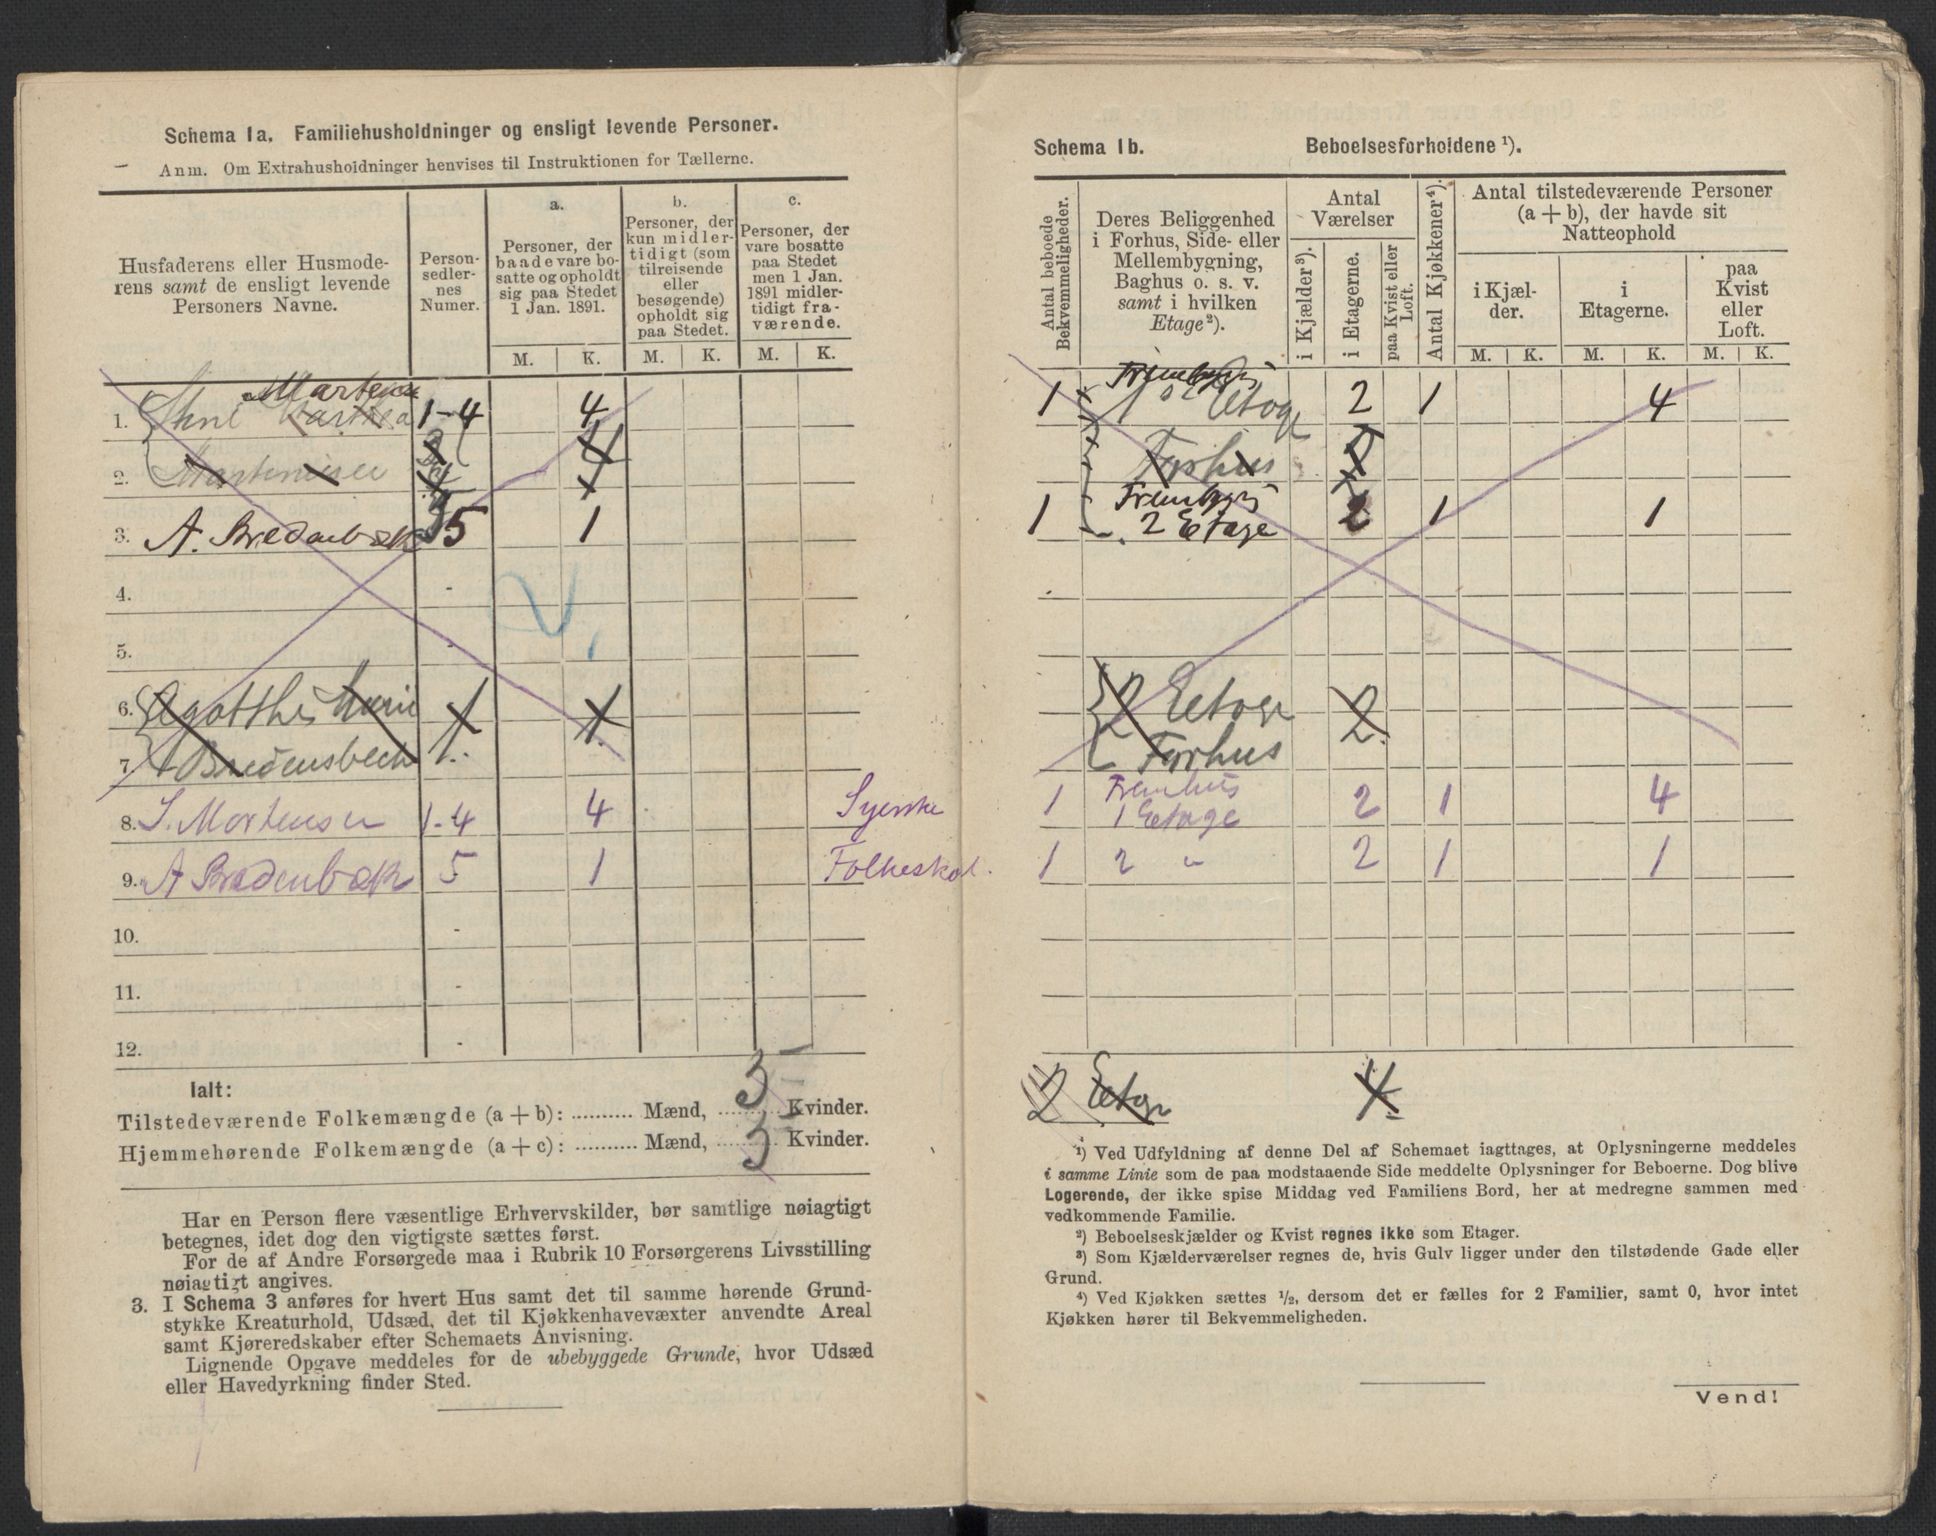 Schema 1a. Familiehusholdninger og ensligt levende Personer.
Anm. Om Extrahusholdninger henvises til Instruktionen for Tællerne.
Husfaderens eller Husmode-
rens samt de ensligt levende
Personers Navne.
Person-
sedler-
nes
Numer.
a.
Personer, der
baade vare bo-
satte og opholdt
sig paa Stedet
1 Jan. 1891.
b.
Personer, der
kun midler-
tidigt (som
tilreisende
eller
besøgende)
opholdt sig
paa Stedet.
c.
Personer, der
vare bosatte
paa Stedet
men 1 Jan.
1891 midler-
tidigt fra-
værende.
M. K. M. K. M. K.
1. 1-4 4
2. Martensen
3. A. Bredenbæk 5 1
4.
5.
6. Agatthe Marie 1 1
7. Bredensbech
8. S. Mortensen 1-4 4 Syerske
9. A Bredenbæk 5 1 Folkeskol.
10.
11.
12.
Ialt:
Tilstedeværende Folkemængde (a + b): .......... Mænd, 5 Kvinder.
Hjemmehørende Folkemængde (a + c): .......... Mænd, 5 Kvinder.
Har en Person flere væsentlige Erhvervskilder, bør samtlige nøiagtigt
betegnes, idet dog den vigtigste sættes først.
For de af Andre Forsørgede maa i Rubrik 10 Forsørgerens Livsstilling
nøiagtigt angives.
3. I Schema 3 anføres for hvert Hus samt det til samme hørende Grund-
stykke Kreaturhold, Udsæd, det til Kjøkkenhavevæxter anvendte Areal
samt Kjøreredskaber efter Schemaets Anvisning.
Lignende Opgave meddeles for de ubebyggede Grunde, hvor Udsæd
eller Havedyrkning finder Sted.
Schema 1b. Beboelsesforholdene ¹).
Antal beboede
Bekvemmeligheder.
Deres Beliggenhed
i Forhus, Side- eller
Mellembygning,
Baghus o. s. v.
samt i hvilken
Etage ²).
Antal
Værelser
i Kjælder ³).
i Etagerne.
paa Kvist eller
Loft.
Antal Kjøkkener ⁴).
Antal tilstedeværende Personer
(a + b), der havde sit
Natteophold
i Kjæl-
der.
i
Etagerne.
paa
Kvist
eller
Loft.
M. K. M. K. M. K.
1 Etage 2 1 4
Forhus
1 2 Etage 2 1 1
2 Eetage 2
Forhus
1 Fremhus
1 Eetage 2 1 4
1 2 " 2 1 1
2 Etage 4
¹) Ved Udfyldning af denne Del af Schemaet iagttages, at Oplysningerne meddeles
i samme Linie som de paa modstaaende Side meddelte Oplysninger for Beboerne. Dog blive
Logerende, der ikke spise Middag ved Familiens Bord, her at medregne sammen med
vedkommende Familie.
²) Beboelseskjælder og Kvist regnes ikke som Etager.
³) Som Kjælderværelser regnes de, hvis Gulv ligger under den tilstødende Gade eller
Grund.
⁴) Ved Kjøkken sættes ½, dersom det er fælles for 2 Familier, samt 0, hvor intet
Kjøkken hører til Bekvemmeligheden.
Vend!